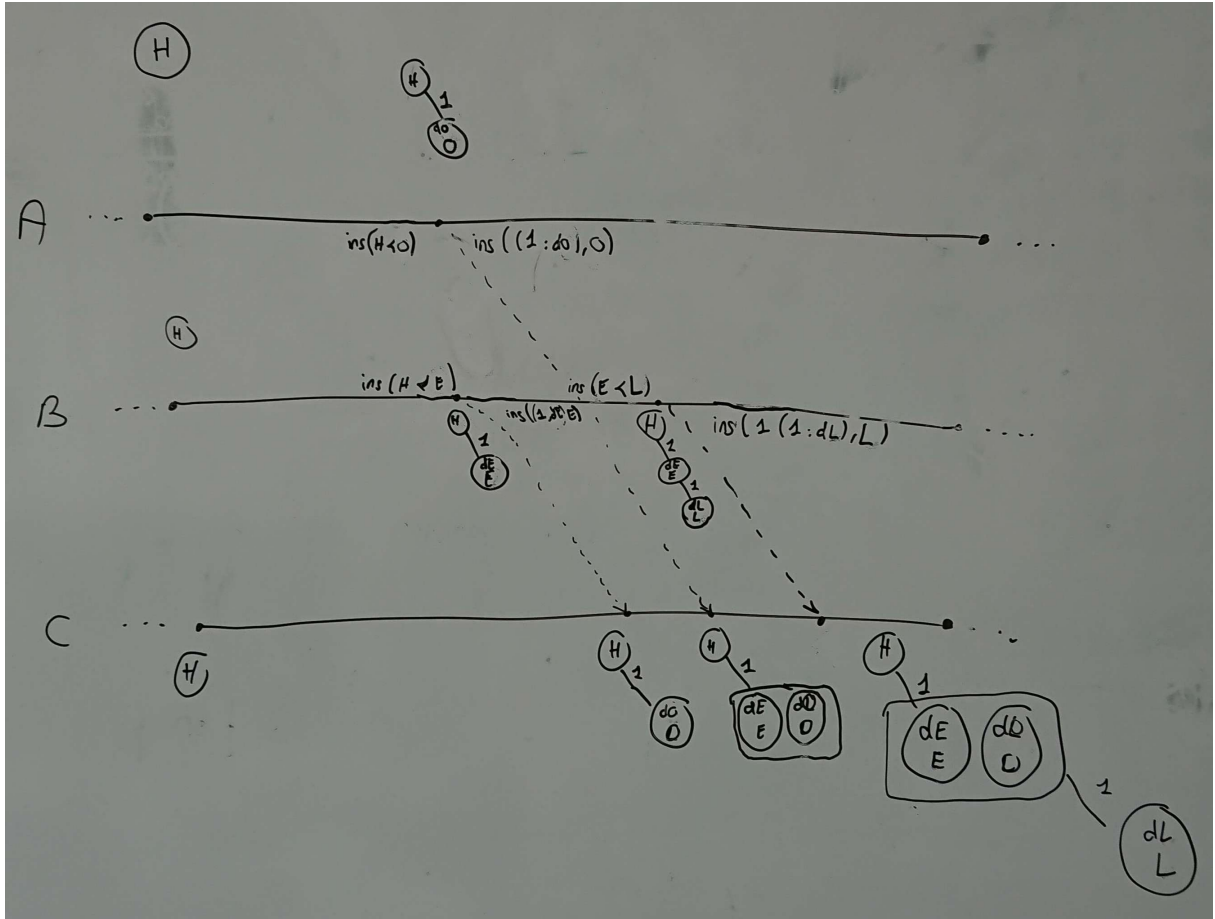 H
H
1
dO
O
A ...
ins(H<O)
ins((1:dO),O)
...
H
B ....
ins(H<E)
ins((1:dE),E)
ins(E<L)
ins(1(1:dL),L)
....
H
1
dE
E
H
1
dE
E
1
dL
L
C ...
...
H
H
1
dO
O
H
1
dE
E
dO
O
H
1
dE
E
dO
O
1
dL
L